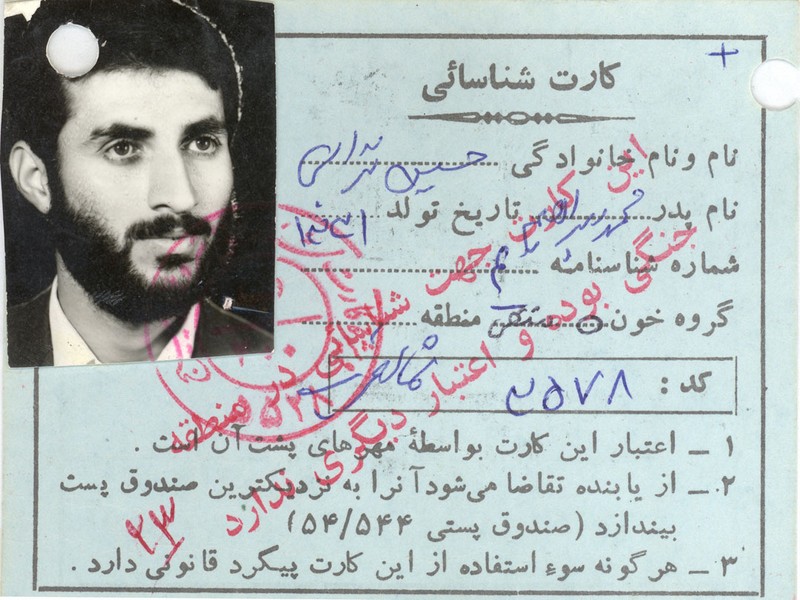 +
کارت شناسائی
نام و نام خانوادگی حسین
نام پدر محمد تاریخ تولد ۱۳۳۱
شماره شناسنامه ۳
گروه خون O منطقه شمالغرب
کد : ۳۵۷۸
۱ ــ اعتبار این کارت بواسطهٔ مهرهای پشت آن است .
۲ ــ از یابنده تقاضا می‌شود آنرا به نزدیکترین صندوق پست
بیندازد (صندوق پستی ۵۴/۵۴۴)
۳ ــ هرگونه سوءِ استفاده از این کارت پیگرد قانونی دارد .
این کارت جهت شناسائی در منطقه
جنگی بوده و اعتبار دیگری ندارد
۲۳